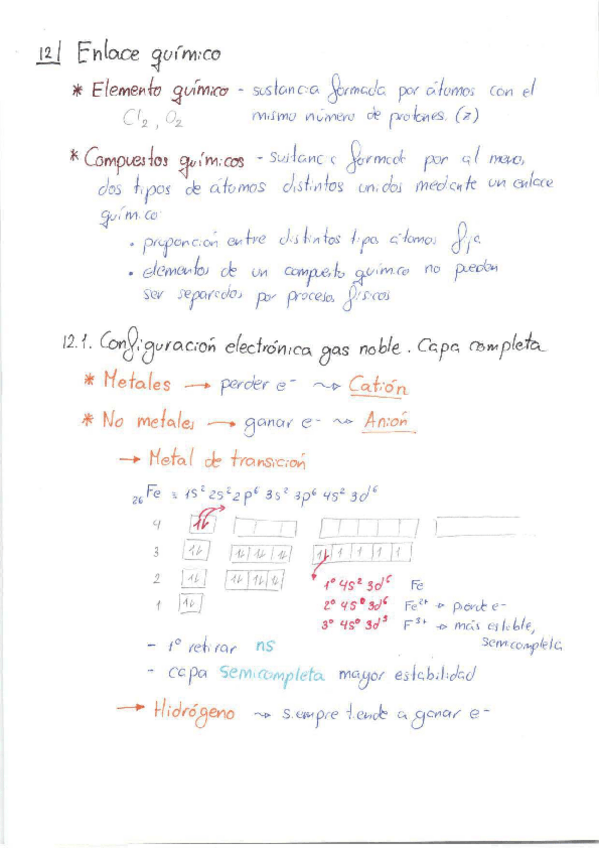 12| Enlace químico
* Elemento químico - sustancia formada por átomos con el
Cl₂, O₂ mismo número de protones. (z)
* Compuestos químicos - sustanc formad por al meno,
dos tipos de átomos distintos unidos mediante un enlace
químico:
• proporción entre distintos tipo, átomos fija
• elementos de un compuesto químico no pueden
ser separados por proceso, físicos
12.1. Configuración electrónica gas noble. Capa completa
* Metales → perder e⁻ ⇝ Catión
* No metales → ganar e⁻ ⇝ Anión
→ Metal de transición
₂₆Fe = 1s² 2s² 2p⁶ 3s² 3p⁶ 4s² 3d⁶
4 1↓
3 1↓ 1↓ 1↓ 1↓ 1↓ 1 1 1 1
2 1↓ 1↓ 1↓ 1↓
1 1↓
1º 4s² 3d⁶ Fe
2º 4s⁰ 3d⁶ Fe²⁺ → pierde e⁻
3º 4s⁰ 3d⁵ F³⁺ → más estable,
semicompleta
- 1º retirar ns
- capa semicompleta mayor estabilidad
→ Hidrógeno ⇝ siempre tiende a ganar e⁻